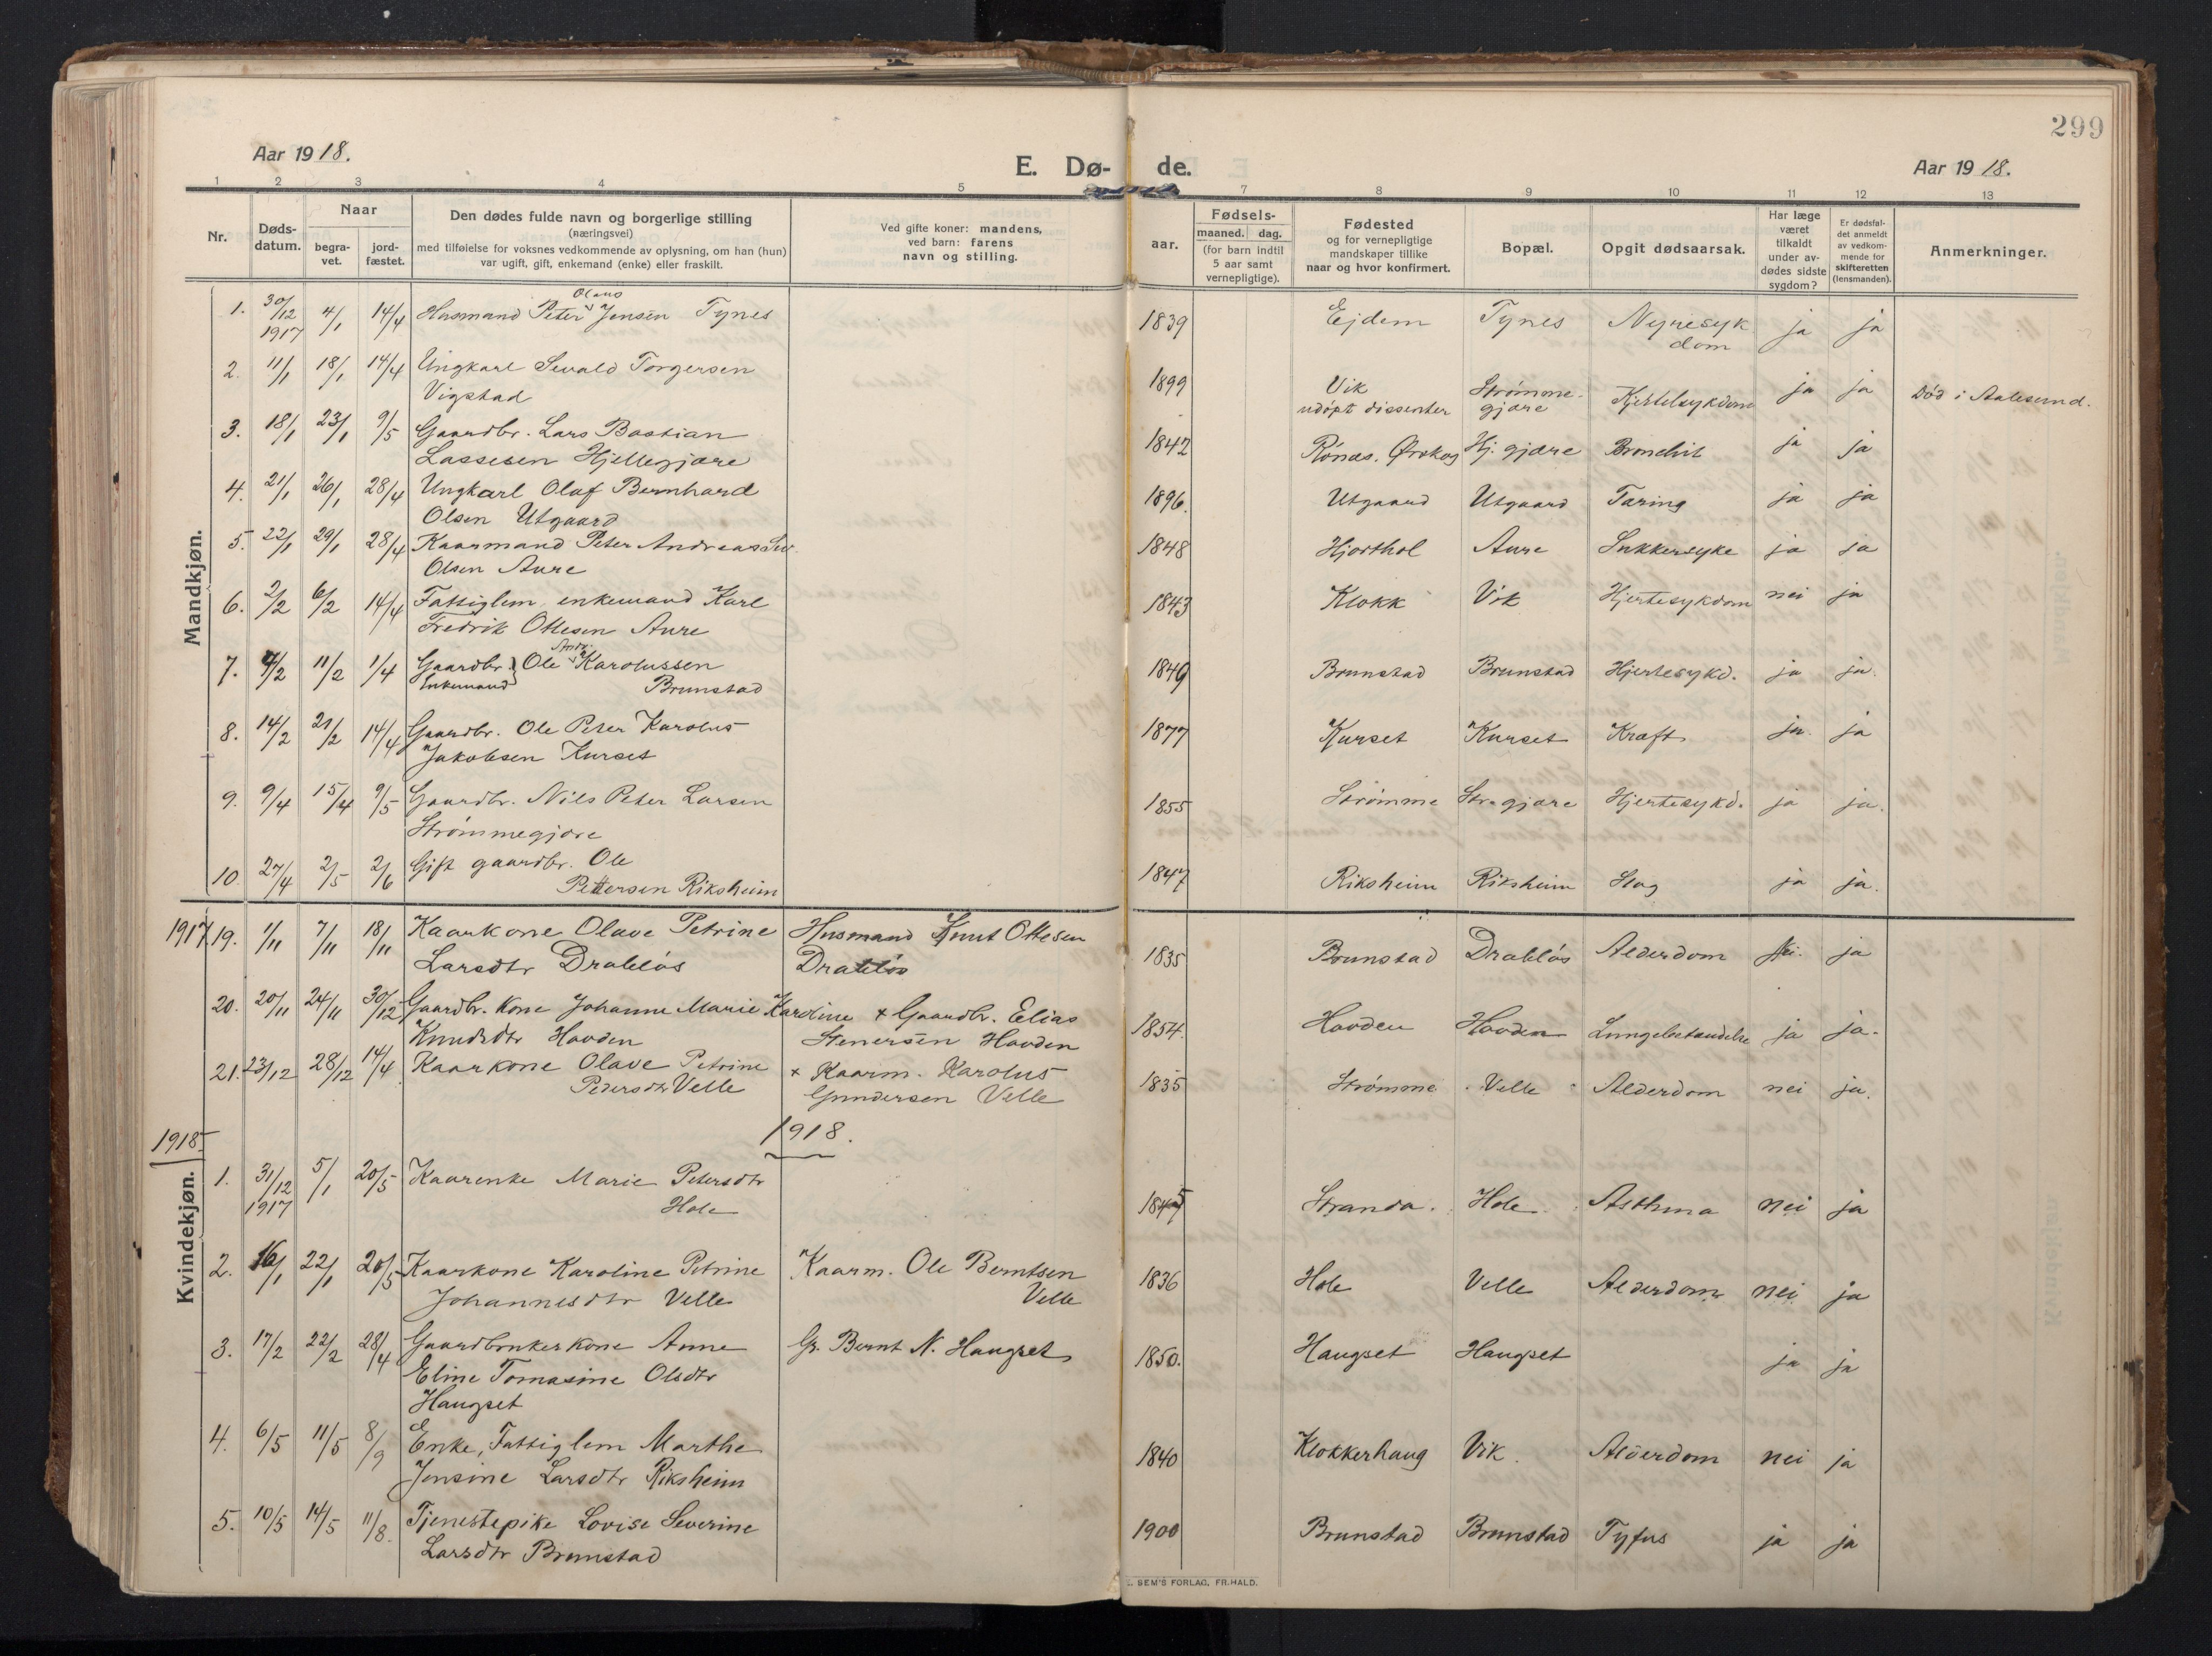 299
Aar 1918.
E. Dø-
de.
Aar 1918.
1 2 3 4 5 7 8 9 10 11 12 13
Nr.
Døds-
datum.
Naar
begra-
vet.
jord-
fæstet.
Den dødes fulde navn og borgerlige stilling
(næringsvei)
med tilføielse for voksnes vedkommende av oplysning, om han (hun)
var ugift, gift, enkemand (enke) eller fraskilt.
Ved gifte koner: mandens,
ved barn: farens
navn og stilling.
aar.
Fødsels-
maaned. dag.
(for barn indtil
5 aar samt
vernepligtige).
Fødested
og for vernepligtige
mandskaper tillike
naar og hvor konfirmert.
Bopæl.
Opgit dødsaarsak.
Har læge
været
tilkaldt
under av-
dødes sidste
sygdom?
Er dødsfal-
det anmeldt
av vedkom-
mende for
skifteretten
(lensmanden).
Anmerkninger.
Mandkjøn.
Olaus
1. 30/12 4/1 14/4 Husmand Peter Jensen Tynes 1839 Ejdem Tynes Nyresyk ja ja
1917 dom
2. 11/1 18/1 14/4 Ungkarl Sevald Torgersen 1899 Vik Strømme- Kjertelsykdom ja ja Død i Aalesund.
Vigstad udøpt dissenter gjære
3. 18/1 23/1 9/5 Gaardbr. Lars Bastian 1842 Rønæs. Ørskog Hj. gjære Bronchit ja ja
Lassesen Hjellegjære
4. 21/1 26/1 28/4 Ungkarl Olaf Bernhard 1896. Utgaard Utgaard Tæring ja ja
Olsen Utgaard
5. 22/1 29/1 28/4 Kaarmand Peter Andreas 1848 Hjorthol Aure Sukkersyke ja ja
Olsen Aure
6. 2/2 6/2 14/4 Fattiglem, enkemand Karl 1843 Klokk Vik Hjertesykdom nei ja
Fredrik Ottesen Aure
Andr.
7. 4/2 11/2 1/4 Gaardbr. } Ole Karolussen 1849 Brunstad Brunstad Hjertesykd. ja ja.
Enkemand Brunstad
8. 14/2 21/2 14/4 Gaardbr. Ole Peter Karolus 1877 Kurset Kurset Kræft ja ja
Jakobsen Kurset
9. 9/4 15/4 9/5 Gaardbr. Nils Peter Larsen 1855 Strømme Str. gjære Hjertesykd. ja ja.
Strømmegjære
10. 27/4 2/5 2/6 Gift gaardbr. Ole 1847 Riksheim Riksheim Slag ja ja.
Pettersen Riksheim
Kvindekjøn.
1917 19. 1/11 7/11 18/11 Kaarkone Olave Petrine Husmand Knut Ottesen 1835 Brunstad Drabløs Alderdom Nei. ja
Larsdtr Drabløs Drabløs
20. 20/11 24/11 30/12 Gaardbr. kone Johanne Marie Karoline + Gaardbr. Elias 1854. Hovden Hovden Lungebetændelse ja ja.
Knudsdtr Hovden Stenersen Hovden
21. 23/12 28/12 14/4 Kaarkone Olave Petrine + Kaarm. Karolus 1835 Strømme Velle Alderdom nei ja.
Pedersdtr Velle Gundersen Velle
1918.
1918
1. 31/12 5/1 20/5 Kaarenke Marie Petersdtr 1845 Stranda. Hole Asthma nei ja
1917 Hole
2. 16/1 22/1 20/5 Kaarkone Karoline Petrine Kaarm. Ole Berntsen 1836 Hole Velle Alderdom nei ja
Johannesdtr Velle Velle
3. 17/2 22/2 28/4 Gaardbrukerkone Anne Gr. Bernt N. Haugset 1850. Haugset Haugset ja ja
Eline Tomasine Olsdtr
Haugset
4. 6/5 11/5 8/9 Enke, Fattiglem Marthe 1840 Klokkerhaug Vik. Alderdom nei ja
Jensine Larsdtr Riksheim
5. 10/5 14/5 11/8. Tjenestepike Lovise Severine 1900 Brunstad Brunstad Tyfus ja ja
Larsdtr Brunstad
SEM'S FORLAG, FR.HALD.